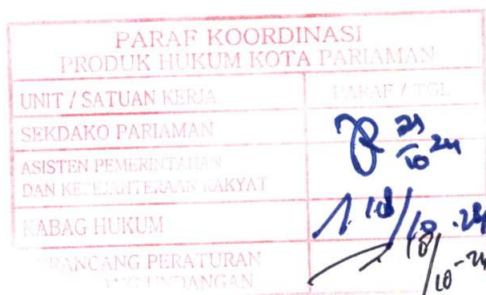 PARAF KOORDINASI
PRODUK HUKUM KOTA PARIAMAN
UNIT / SATUAN KERJA PARAF / TGL
SEKDAKO PARIAMAN
ASISTEN PEMERINTAHAN
DAN KESEJAHTERAAN RAKYAT
KABAG HUKUM
RANCANG PERATURAN
UNDANGAN